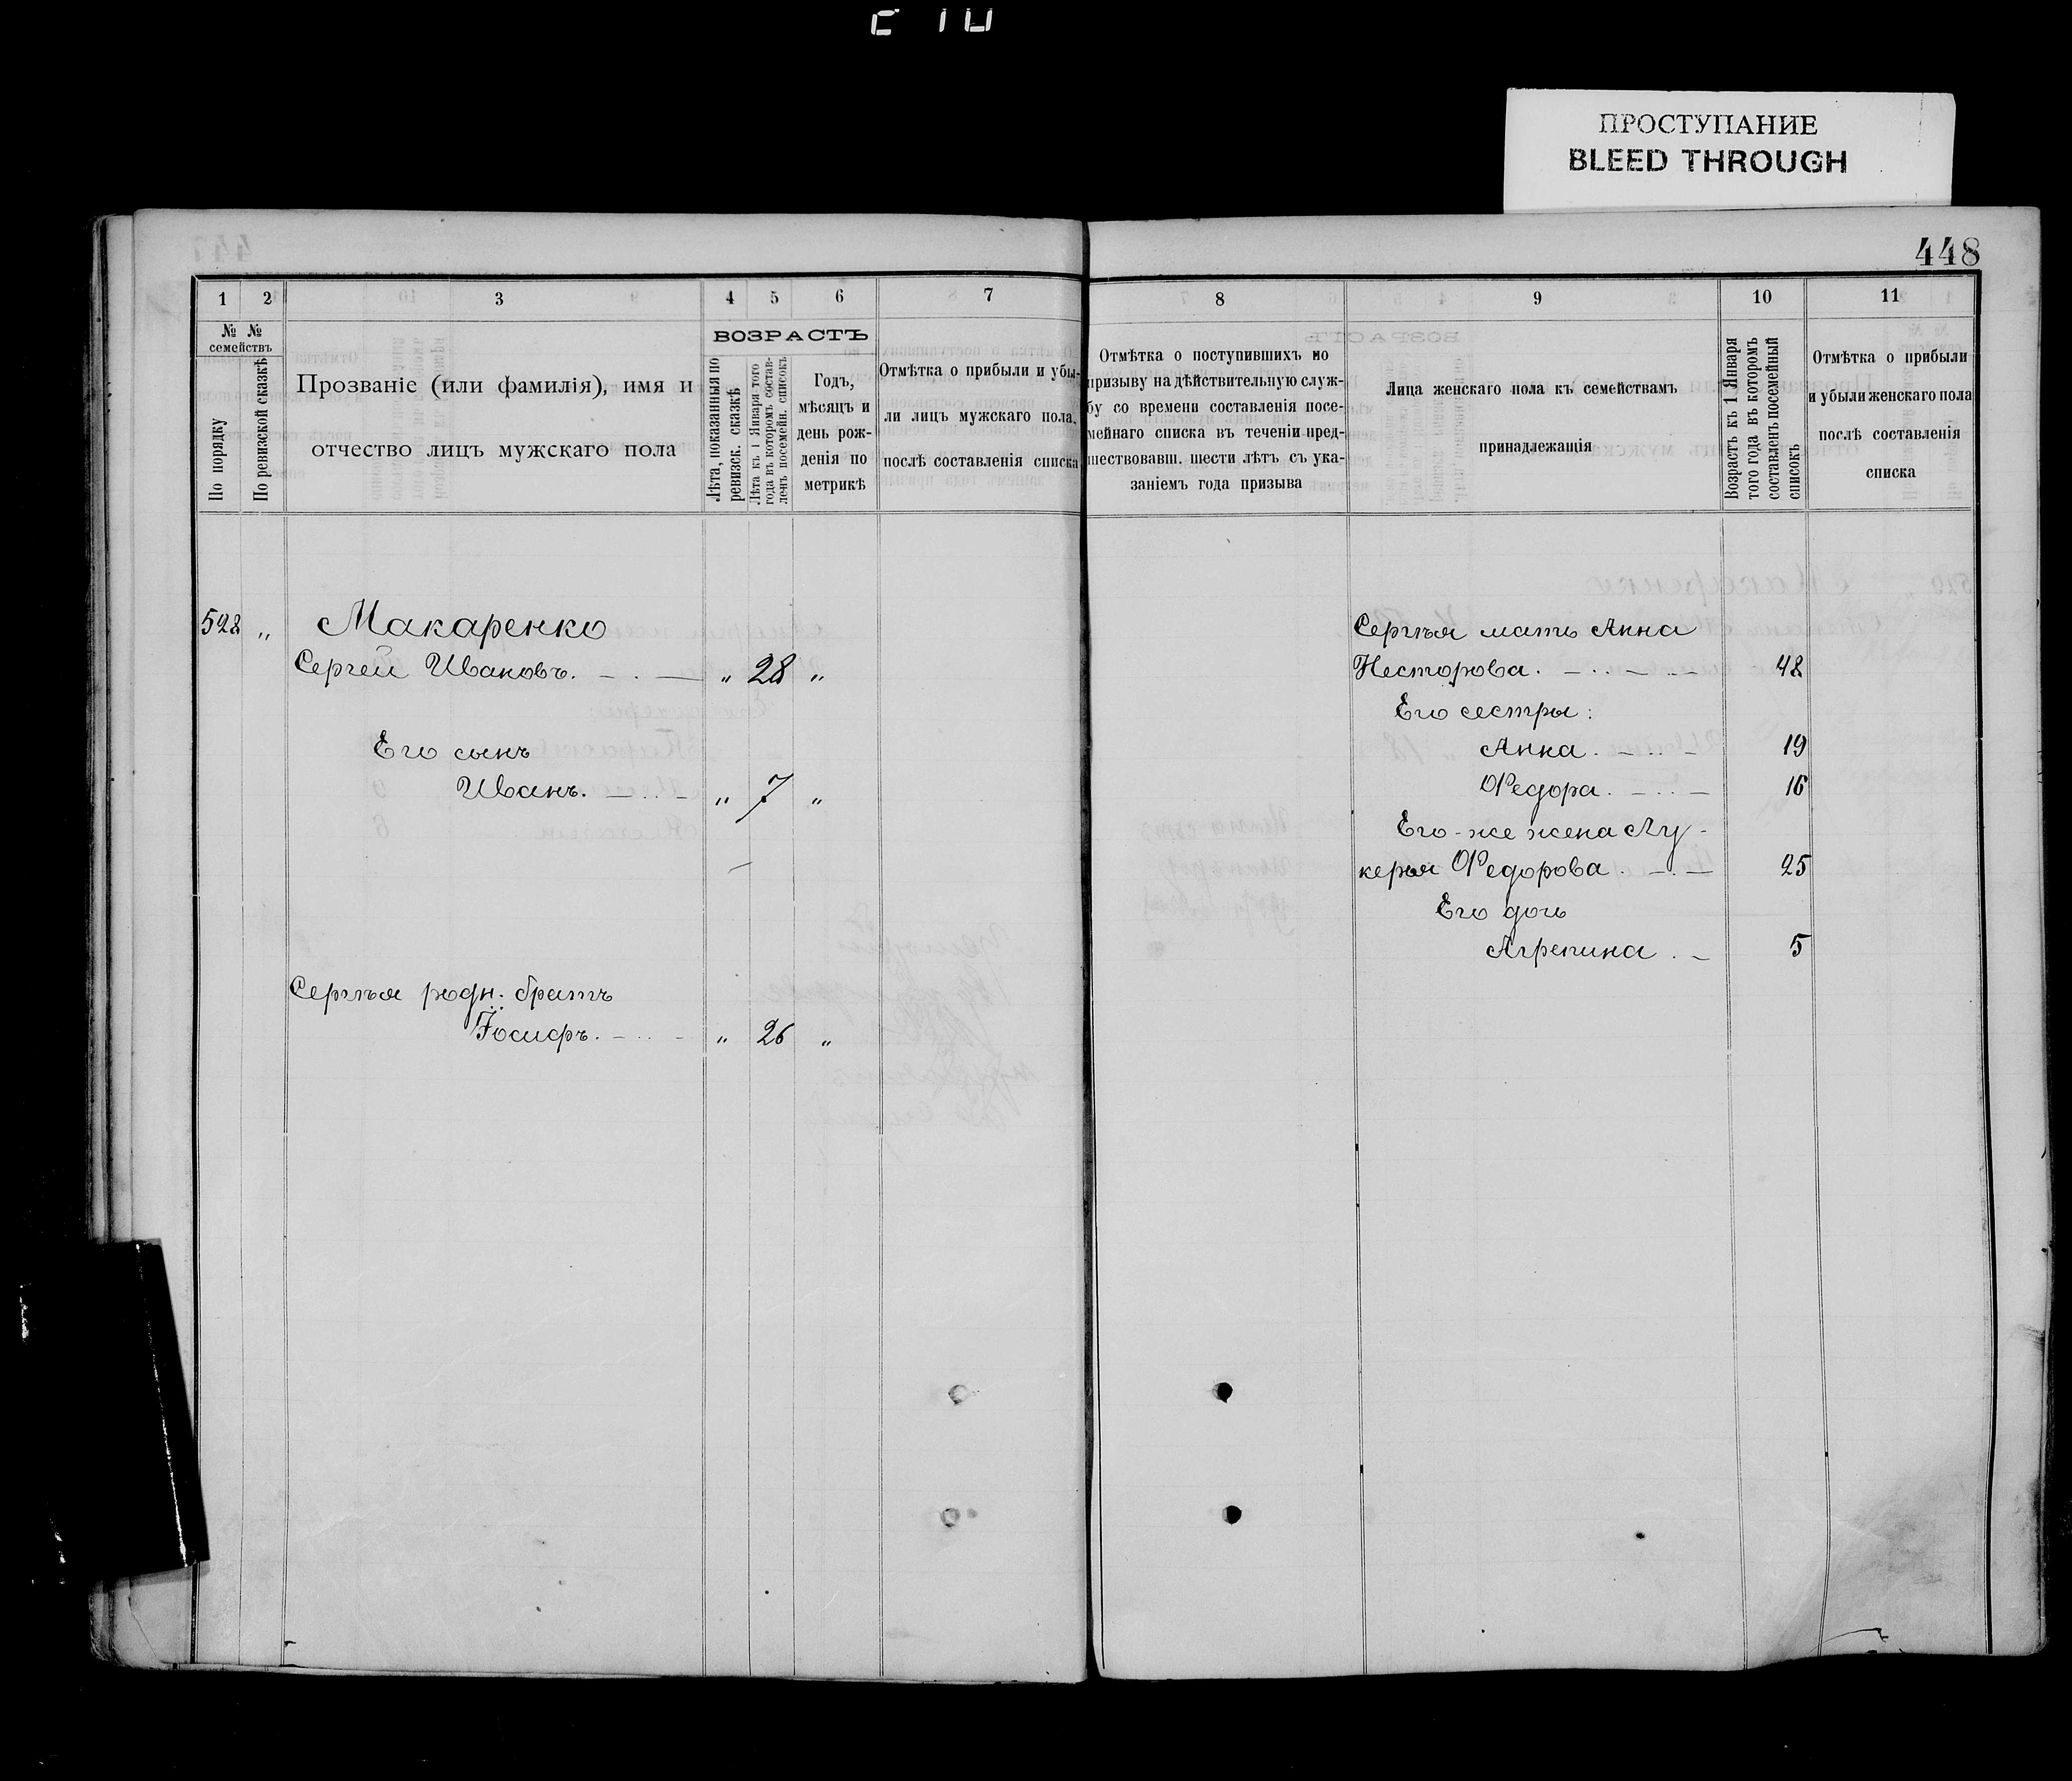 ПРОСТУПАНИЕ
BLEED THROUGH
448
1 2 3 4 5 6 7
№ № семействъ
По порядку
По ревизской сказкѣ
Прозваніе (или фамилія), имя и
отчество лицъ мужскаго пола
ВОЗРАСТЪ
Лѣта, показанныя по
ревизск. сказкѣ
Лѣта къ 1 Января того
года въ которомъ состав-
ленъ посемейн. списокъ
Годъ,
мѣсяцъ и
день рож-
денія по
метрикѣ
Отмѣтка о прибыли и убы-
ли лицъ мужскаго пола,
послѣ составленія списка
8 9 10 11
Отмѣтка о поступившихъ по
призыву на дѣйствительную служ-
бу со времени составленія посе-
мейнаго списка въ теченіи пред-
шествовавш. шести лѣтъ съ ука-
заніемъ года призыва
Лица женскаго пола къ семействамъ
принадлежащія
Возрастъ къ 1 Января
того года въ которомъ
составленъ посемейный
списокъ
Отмѣтка о прибыли
и убыли женскаго пола
послѣ составленія
списка
528 „ Макаренко
Сергей Ивановъ. „ 28 „
Его сынъ
Иванъ. „ 7 „
Сергѣя родн. братъ
Іосифъ. „ 26 „
Сергѣя мать Анна
Несторова. 48
Его сестры:
Анна. 19
Федора. 16
Его-же жена Лу-
керья Федорова. 25
Его дочь
Агрепина. 5